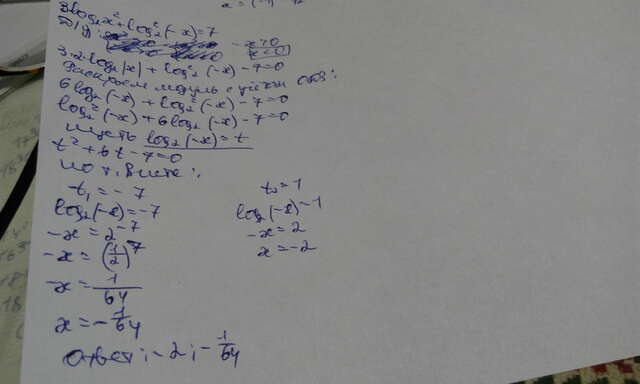 3log₂x²+log₂²(-x)=7
-x>0
x<0
3·2log₂|x|+log₂²(-x)-7=0
Раскроем модуль с учётом одз:
6log₂(-x)+log₂²(-x)-7=0
log₂²(-x)+6log₂(-x)-7=0
пусть log₂(-x)=t
t²+6t-7=0
по т. Виета:
t₁=-7 t₂=1
log₂(-x)=-7 log₂(-x)=1
-x=2⁻⁷ -x=2
-x=(1/2)⁷ x=-2
-x=1/64
x=-1/64
Ответ: -2; -1/64